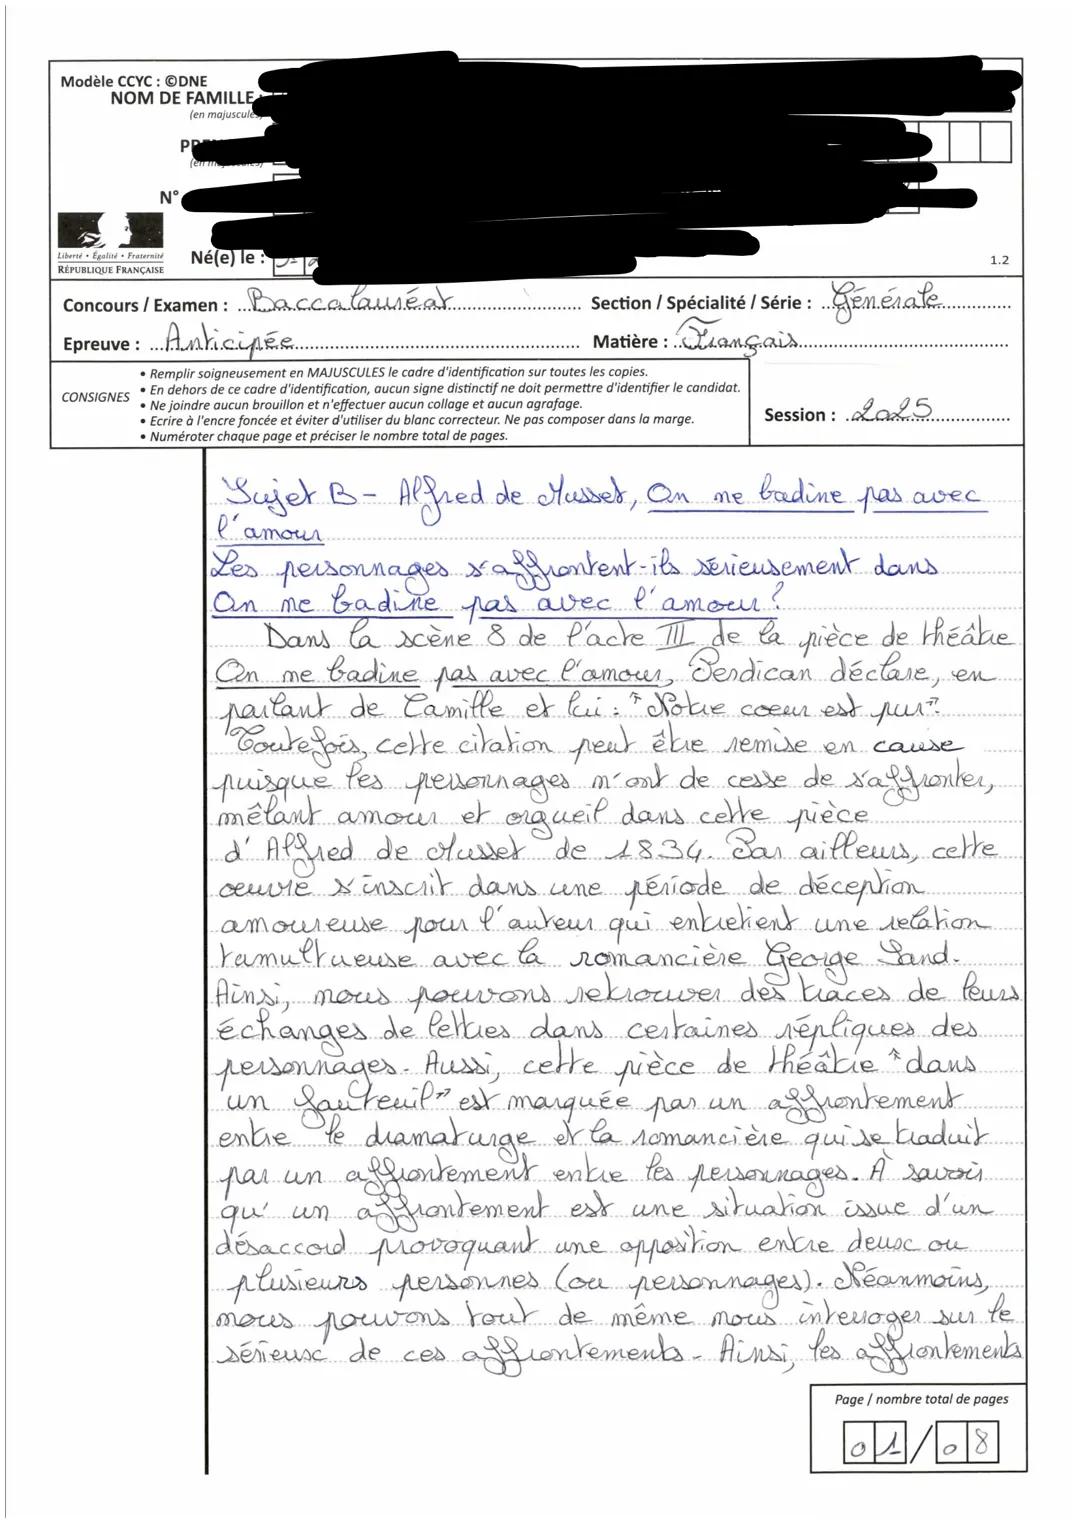 Modèle CCYC : ©DNE
NOM DE FAMILLE
(en majuscules)
N°
Liberté • Égalité • Fraternité
RÉPUBLIQUE FRANÇAISE
Né(e) le :
1.2
Concours / Examen : Baccalauréat Section / Spécialité / Série : Générale
Epreuve : Anticipée Matière : Français
CONSIGNES
• Remplir soigneusement en MAJUSCULES le cadre d'identification sur toutes les copies.
• En dehors de ce cadre d'identification, aucun signe distinctif ne doit permettre d'identifier le candidat.
• Ne joindre aucun brouillon et n'effectuer aucun collage et aucun agrafage.
• Ecrire à l'encre foncée et éviter d'utiliser du blanc correcteur. Ne pas composer dans la marge.
• Numéroter chaque page et préciser le nombre total de pages.
Session : 2025
Sujet B - Alfred de Musset, On ne badine pas avec
l'amour
Les personnages s'affrontent-ils sérieusement dans
On ne badine pas avec l'amour?
Dans la scène 8 de l'acte III de la pièce de théâtre
On ne badine pas avec l'amour, Perdican déclare, en
parlant de Camille et lui : "Notre coeur est pur".
Toutefois, cette citation peut être remise en cause
puisque les personnages n'ont de cesse de s'affronter,
mêlant amour et orgueil dans cette pièce
d'Alfred de Musset de 1834. Par ailleurs, cette
oeuvre s'inscrit dans une période de déception
amoureuse pour l'auteur qui entretient une relation
tumultueuse avec la romancière George Sand.
Ainsi, nous pouvons retrouver des traces de leurs
échanges de lettres dans certaines répliques des
personnages. Aussi, cette pièce de théâtre "dans
un fauteuil" est marquée par un affrontement
entre le dramaturge et la romancière qui se traduit
par un affrontement entre les personnages. À savoir
qu'un affrontement est une situation issue d'un
désaccord provoquant une opposition entre deux ou
plusieurs personnes (ou personnages). Néanmoins,
nous pouvons tout de même nous interroger sur le
sérieux de ces affrontements. Ainsi, les affrontements
Page / nombre total de pages
01/08